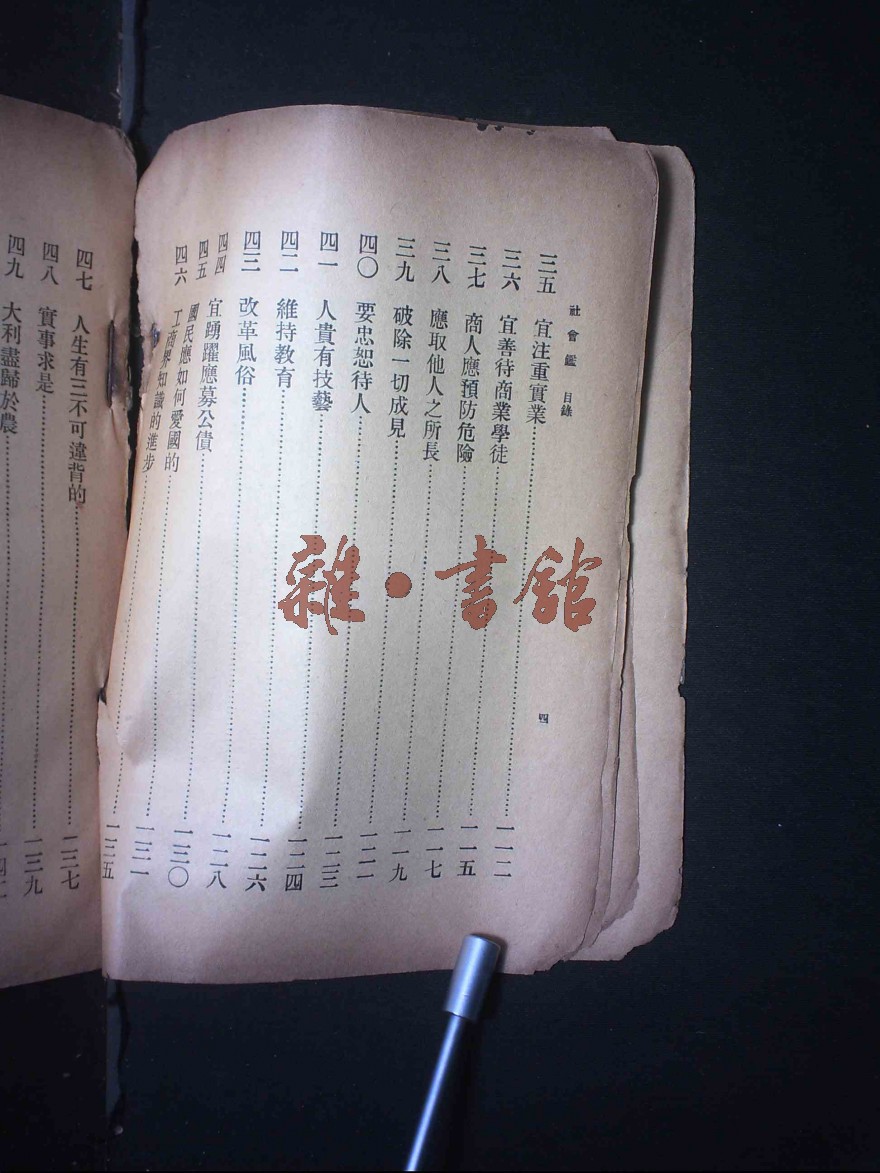 社會鑑 目錄 四
三五 宜注重實業……一一二
三六 宜善待商業學徒……一一五
三七 商人應預防危險……一一七
三八 應取他人之所長……一一九
三九 破除一切成見……一二一
四〇 要忠恕待人……一二三
四一 人貴有技藝……一二四
四二 維持教育……一二六
四三 改革風俗……一二八
四四 宜踴躍應募公債……一三〇
四五 國民應如何愛國的……一三一
四六 工商界知識的進步……一三五
四七 人生有三不可違背的……一三七
四八 實事求是……一三九
四九 大利盡歸於農……一四二
雜·書館